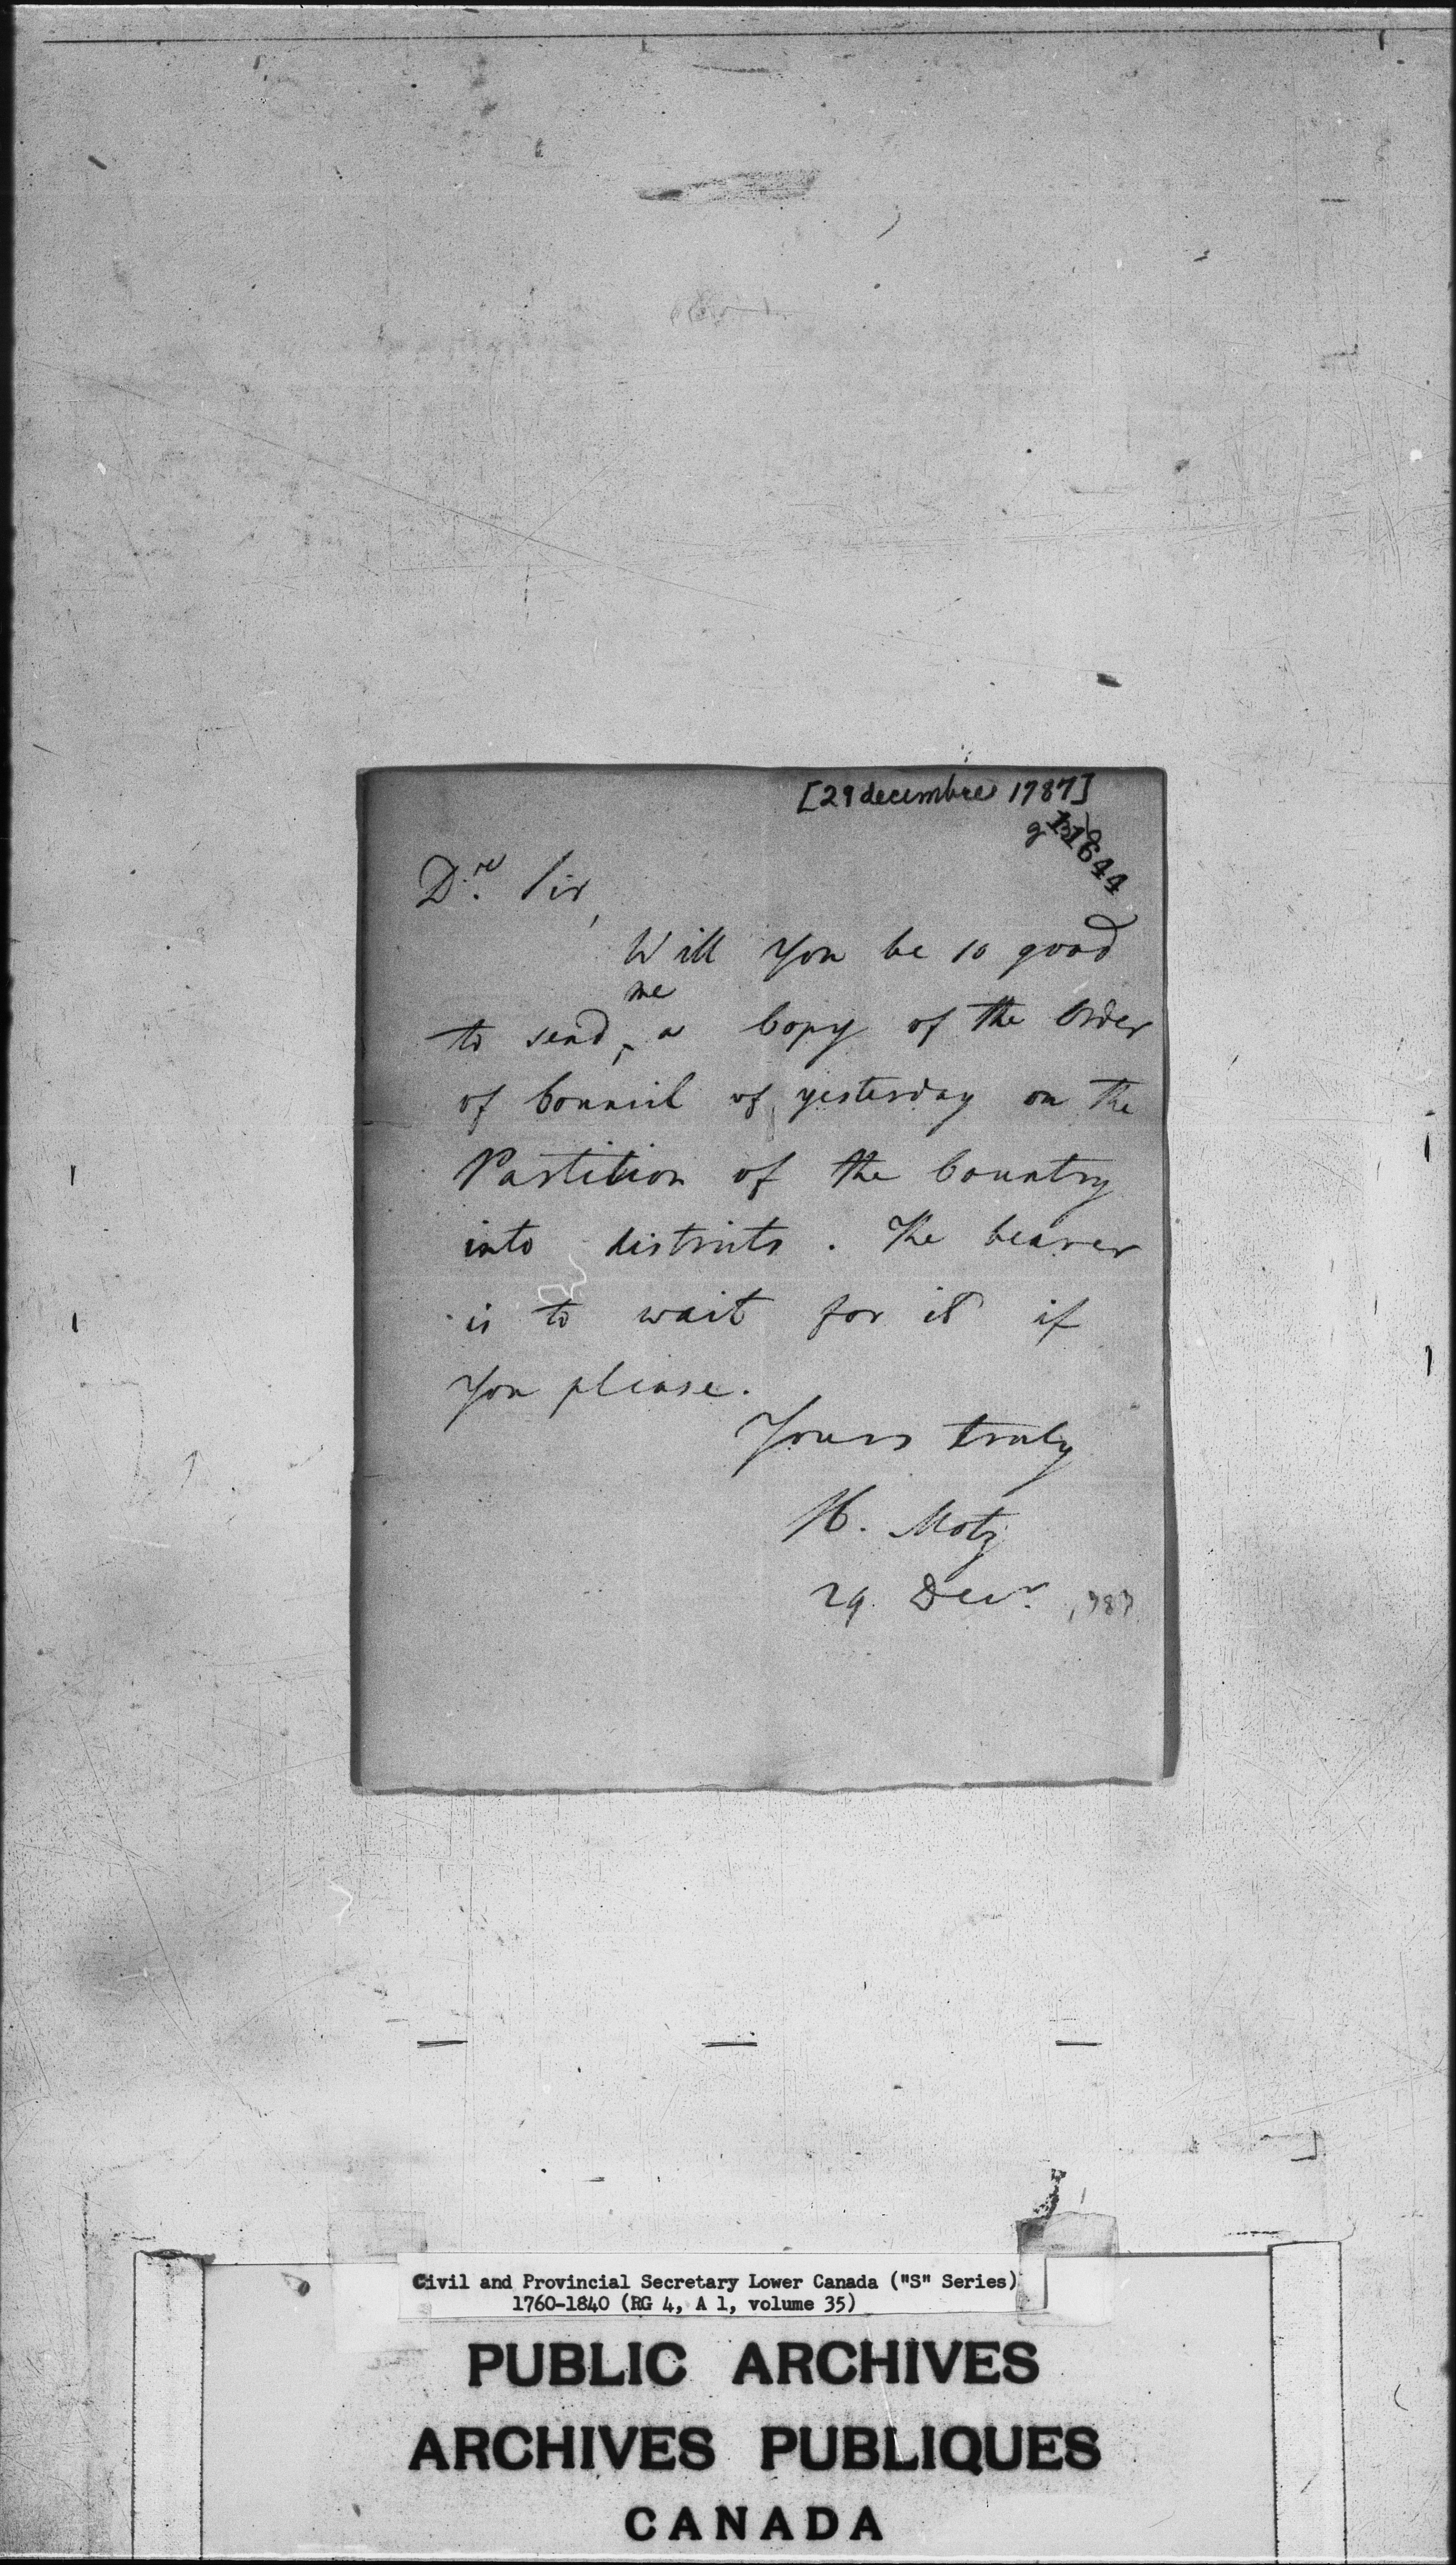 [29 decembre 1787]
11644
D.r Sir,
Will you be so good
me
to send ^ a Copy of the Order
of Council of yesterday on the
Partition of the Country
into districts. The bearer
is to wait for it if
you please.
Yours truly
H. Motz
29. Decr. 1787
Civil and Provincial Secretary Lower Canada ("S" Series)
1760-1840 (RG 4, A 1, volume 35)
PUBLIC ARCHIVES
ARCHIVES PUBLIQUES
CANADA